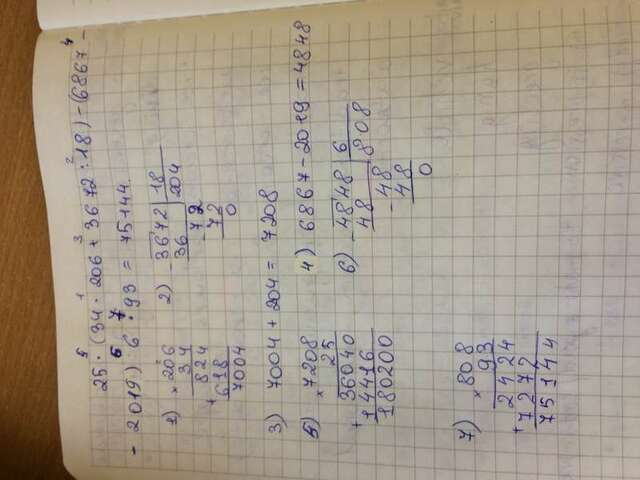 5 1 3 2 4
25 · (34 · 206 + 3672 : 18) - (6867 -
6 7
- 2019) : 6 · 93 = 75144.
1) × 206
34
824
+ 618
7004
2) - 3672 | 18
36 | 204
- 72
72
0
3) 7004 + 204 = 7208
4) 6867 - 2019 = 4848
5) × 7208
25
36040
+ 14416
180200
6) - 4848 | 6
48 | 808
- 48
48
0
7) × 808
93
2424
+ 7272
75144